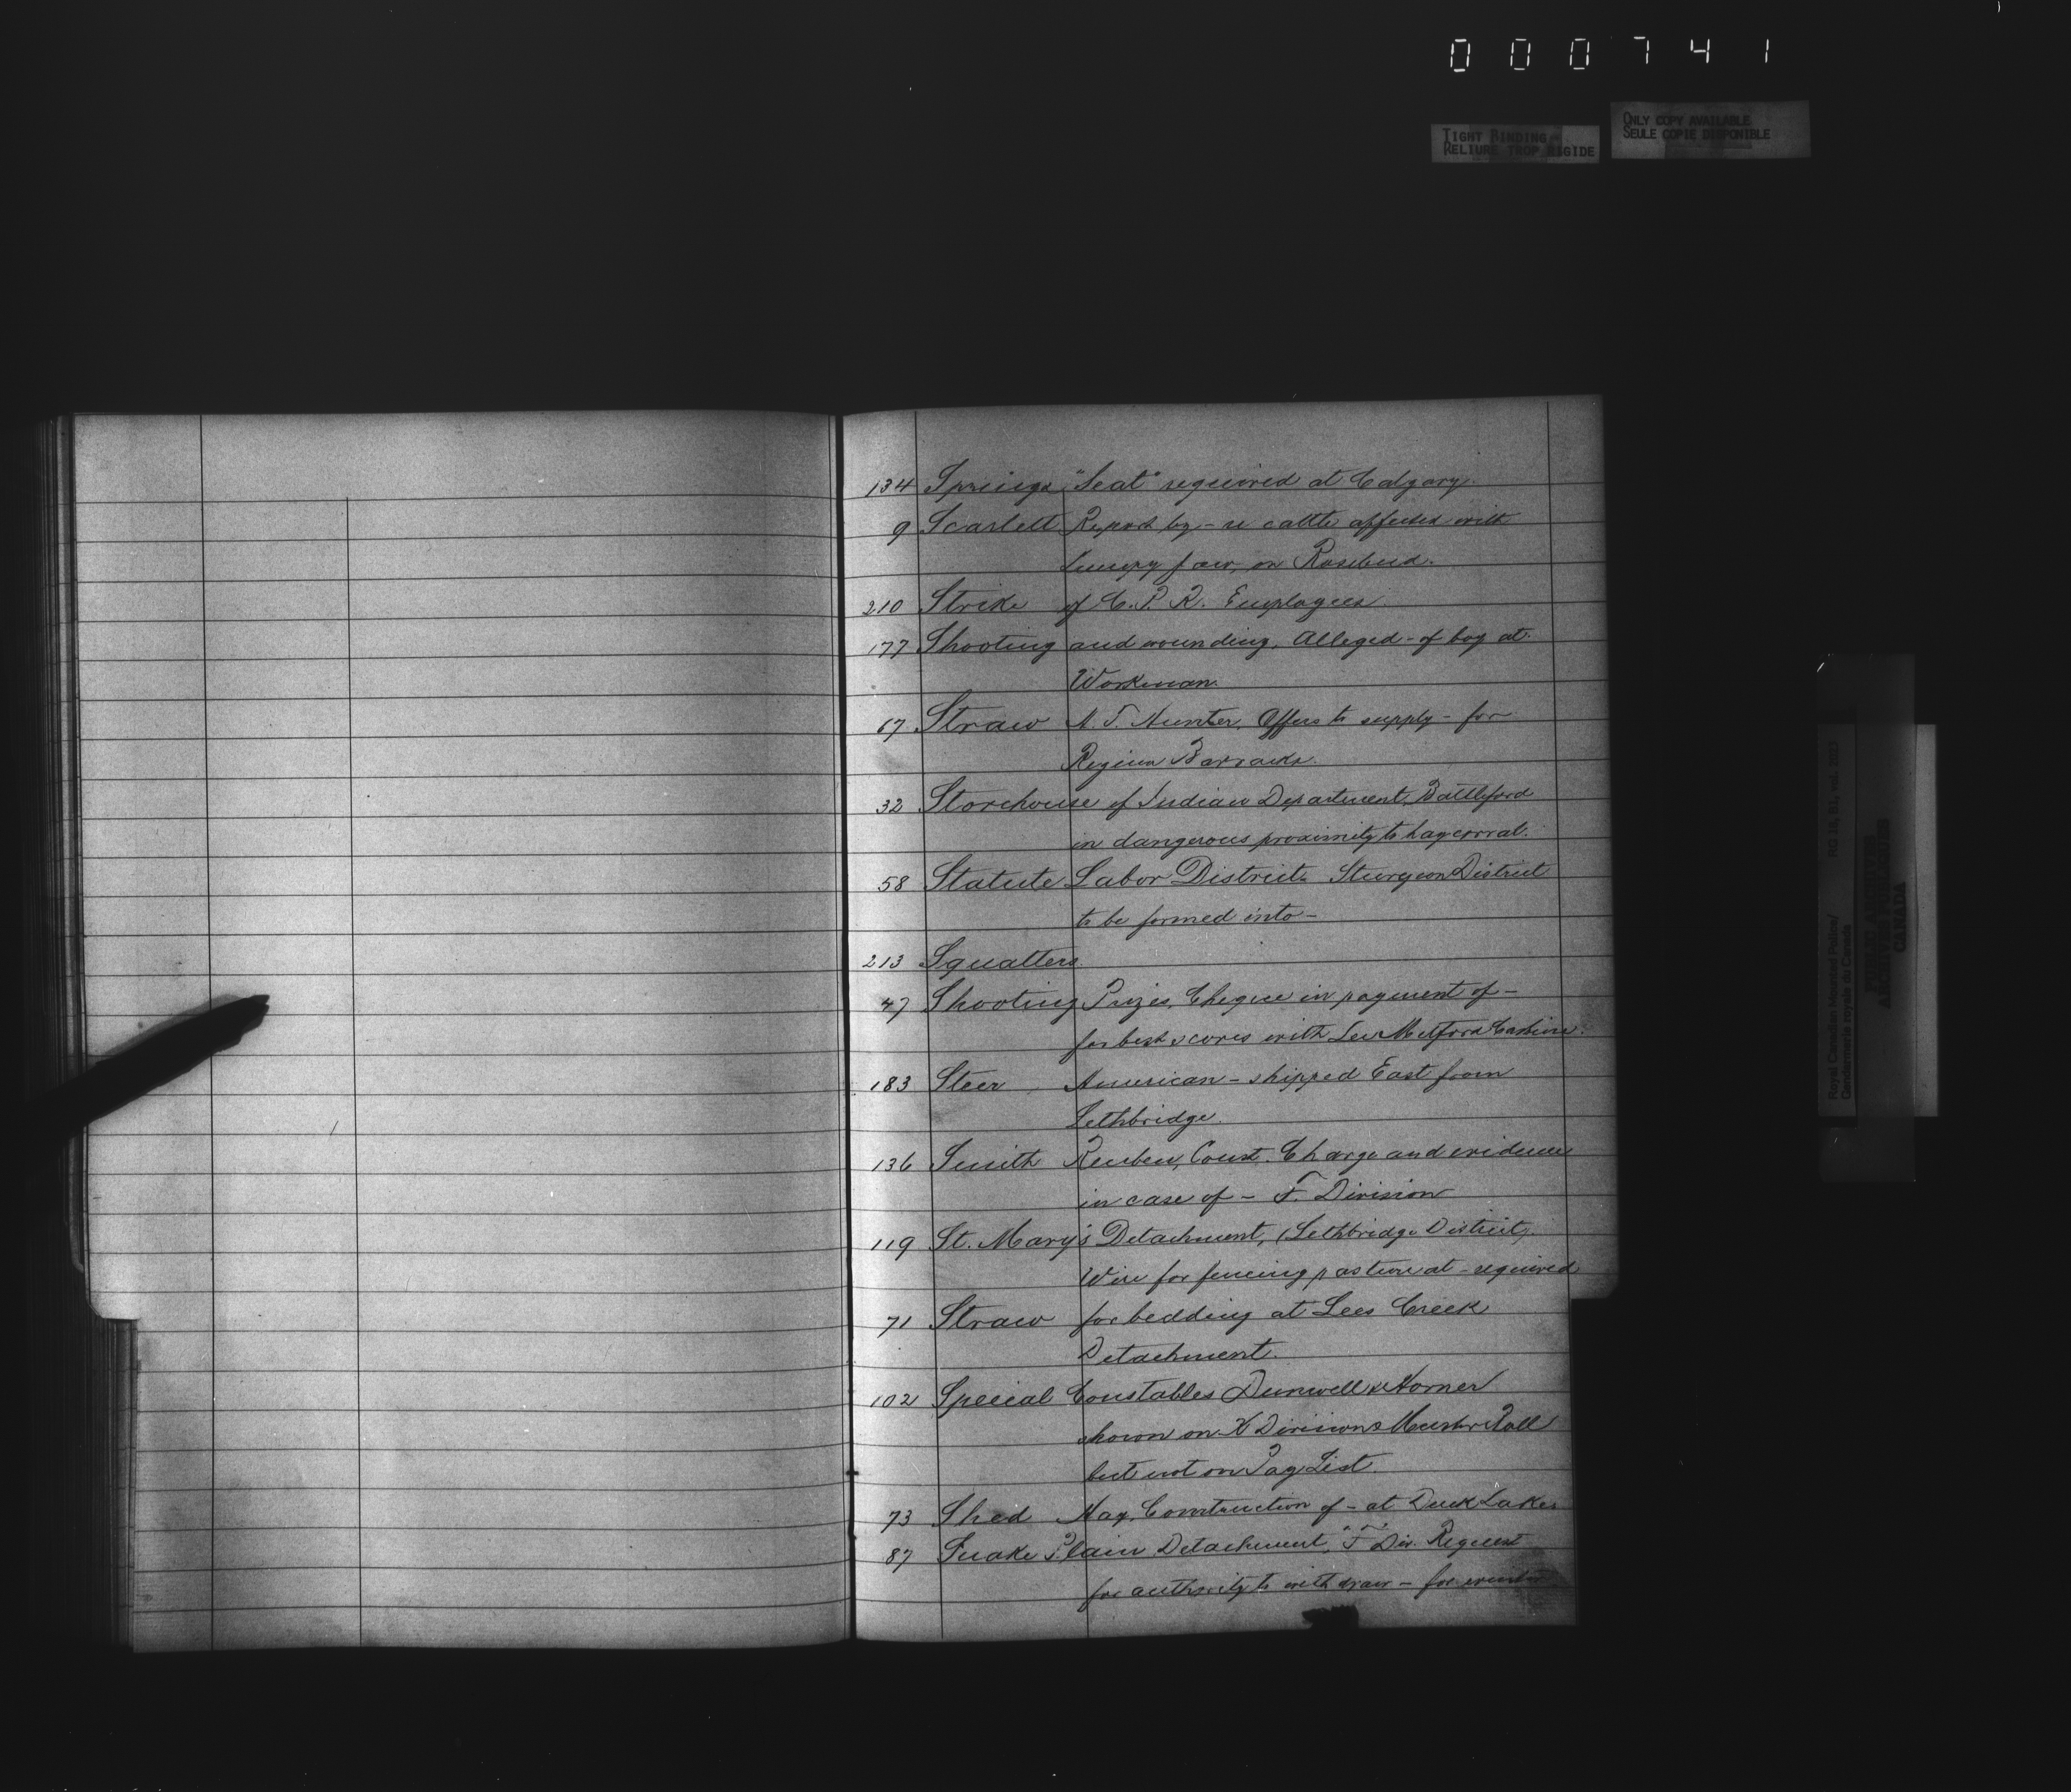 000741
TIGHT BINDING
RELIURE TROP RIGIDE
ONLY COPY AVAILABLE
SEULE COPIE DISPONIBLE
134 Springs, "Seat" required at Calgary.
9 Scarlett Report by - re cattle affected with
lumpy jaw, on Rosebud.
210 Strike of C.P.R. Employees.
177 Shooting and wounding, Alleged - of boy at
Workman.
67 Straw A. T. Hunter, Offers to supply - for
Regina Barracks.
32 Storehouse of Indian Department, Battleford
in dangerous proximity to hay corral.
58 Statute Labor District. Sturgeon District
to be formed into -
213 Squatters.
47 Shooting Prizes, Cheque in payment of -
for best scores with Lee Metford Carbine.
183 Steer, American - shipped East from
Lethbridge.
136 Smith Reuben, Const. Charge and evidence
in case of - F. Division
119 St. Mary's Detachment, (Lethbridge District).
Wire for fencing pasture at - required
71 Straw for bedding at Lees Creek
Detachment.
102 Special Constables Dunwell & Horner
shown on K Divisions Muster Roll
but not on Pay List.
73 Shed Hay, Construction of - at Duck Lake.
87 Snake Plain Detachment, "F" Div. Request
for authority to withdraw - for winter
Royal Canadian Mounted Police/
Gendarmerie royale du Canada
RG 18, B1, vol. 2023
PUBLIC ARCHIVES
ARCHIVES PUBLIQUES
CANADA